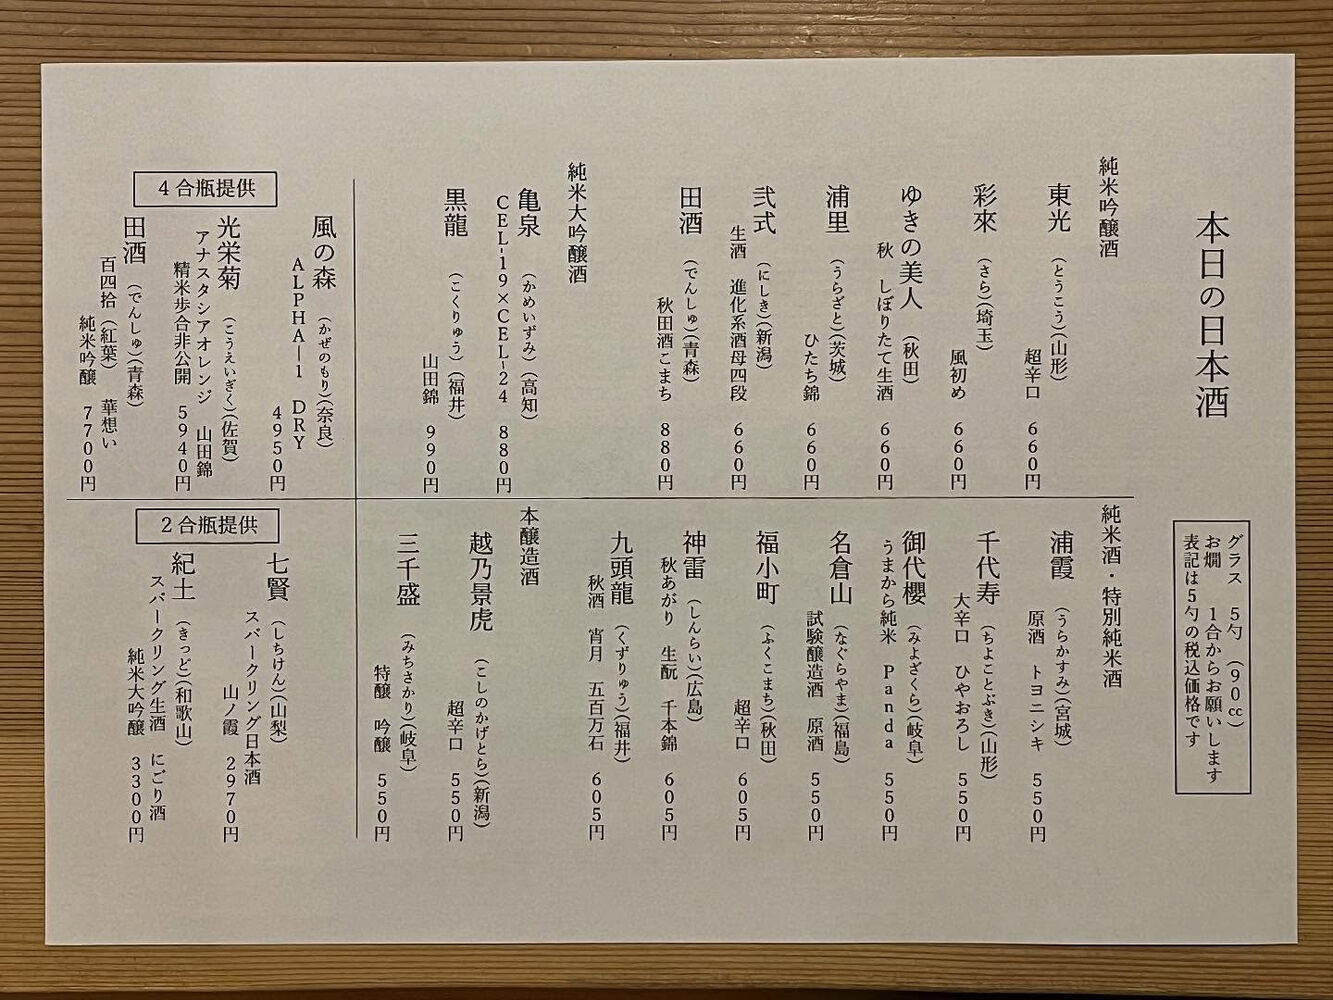 本日の日本酒
グラス　5勺　(90cc)
お燗　1合からお願いします
表記は5勺の税込価格です
純米吟醸酒
東光　(とうこう)(山形)
超辛口　660円
彩來　(さら)(埼玉)
風初め　660円
ゆきの美人　(秋田)
秋　しぼりたて生酒　660円
浦里　(うらざと)(茨城)
ひたち錦　660円
弐式　(にしき)(新潟)
生酒　進化系酒母四段　660円
田酒　(でんしゅ)(青森)
秋田酒こまち　880円
純米大吟醸酒
亀泉　(かめいずみ)(高知)
CEL-19×CEL-24　880円
黒龍　(こくりゅう)(福井)
山田錦　990円
純米酒・特別純米酒
浦霞　(うらかすみ)(宮城)
原酒　トヨニシキ　550円
千代寿　(ちよことぶき)(山形)
大辛口　ひやおろし　550円
御代櫻　(みよざくら)(岐阜)
うまから純米　Panda　550円
名倉山　(なぐらやま)(福島)
試験醸造酒　原酒　550円
福小町　(ふくこまち)(秋田)
超辛口　605円
神雷　(しんらい)(広島)
秋あがり　生酛　千本錦　605円
九頭龍　(くずりゅう)(福井)
秋酒　宵月　五百万石　605円
本醸造酒
越乃景虎　(こしのかげとら)(新潟)
超辛口　550円
三千盛　(みちさかり)(岐阜)
特醸　吟醸　550円
4合瓶提供
風の森　(かぜのもり)(奈良)
ALPHA―1　DRY　4950円
光栄菊　(こうえいぎく)(佐賀)
アナスタシアオレンジ　山田錦
精米歩合非公開　5940円
田酒　(でんしゅ)(青森)
百四拾　(紅葉)　華想い
純米吟醸　7700円
2合瓶提供
七賢　(しちけん)(山梨)
スパークリング日本酒
山ノ霞　2970円
紀土　(きっど)(和歌山)
スパークリング生酒　にごり酒
純米大吟醸　3300円